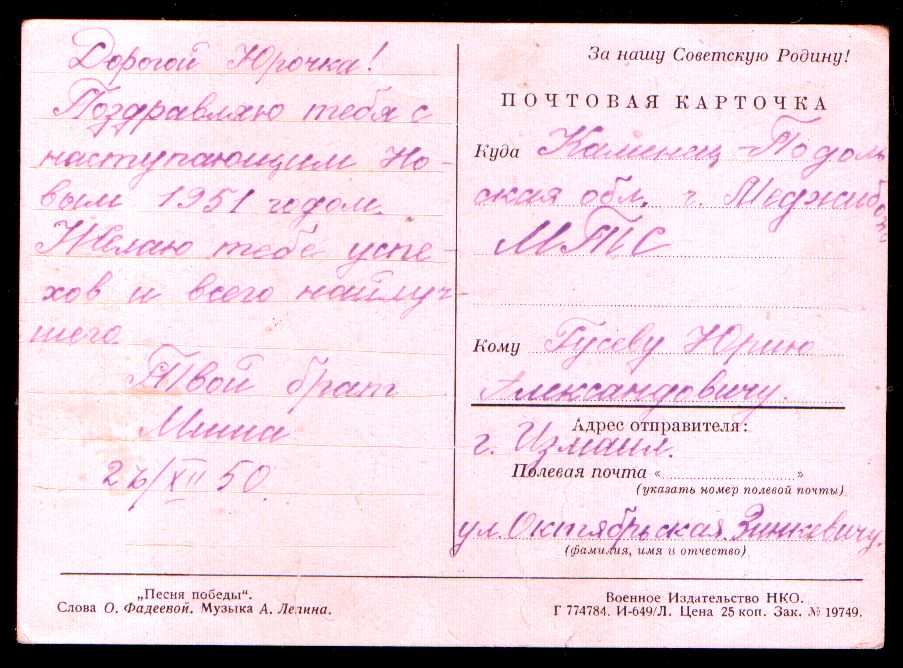 Дорогой Юрочка!
Поздравляю тебя с
наступающим Но-
вым 1951 годом.
Желаю тебе успе-
хов и всего найлуч-
шего.
Твой брат
Миша
/XII 50.
За нашу Советскую Родину!
ПОЧТОВАЯ КАРТОЧКА
Куда Каменец-Подоль
ская обл. г. Меджибож
МТС
Кому Гусеву Юрию
Александовичу.
Адрес отправителя:
г. Измаил.
Полевая почта « »
(указать номер полевой почты)
ул. Октябрьская. Зинкевичу.
(фамилия, имя и отчество)
„Песня победы“.
Слова О. Фадеевой. Музыка А. Лепина.
Военное Издательство НКО.
Г 774784. И-649/Л. Цена 25 коп. Зак. № 19749.